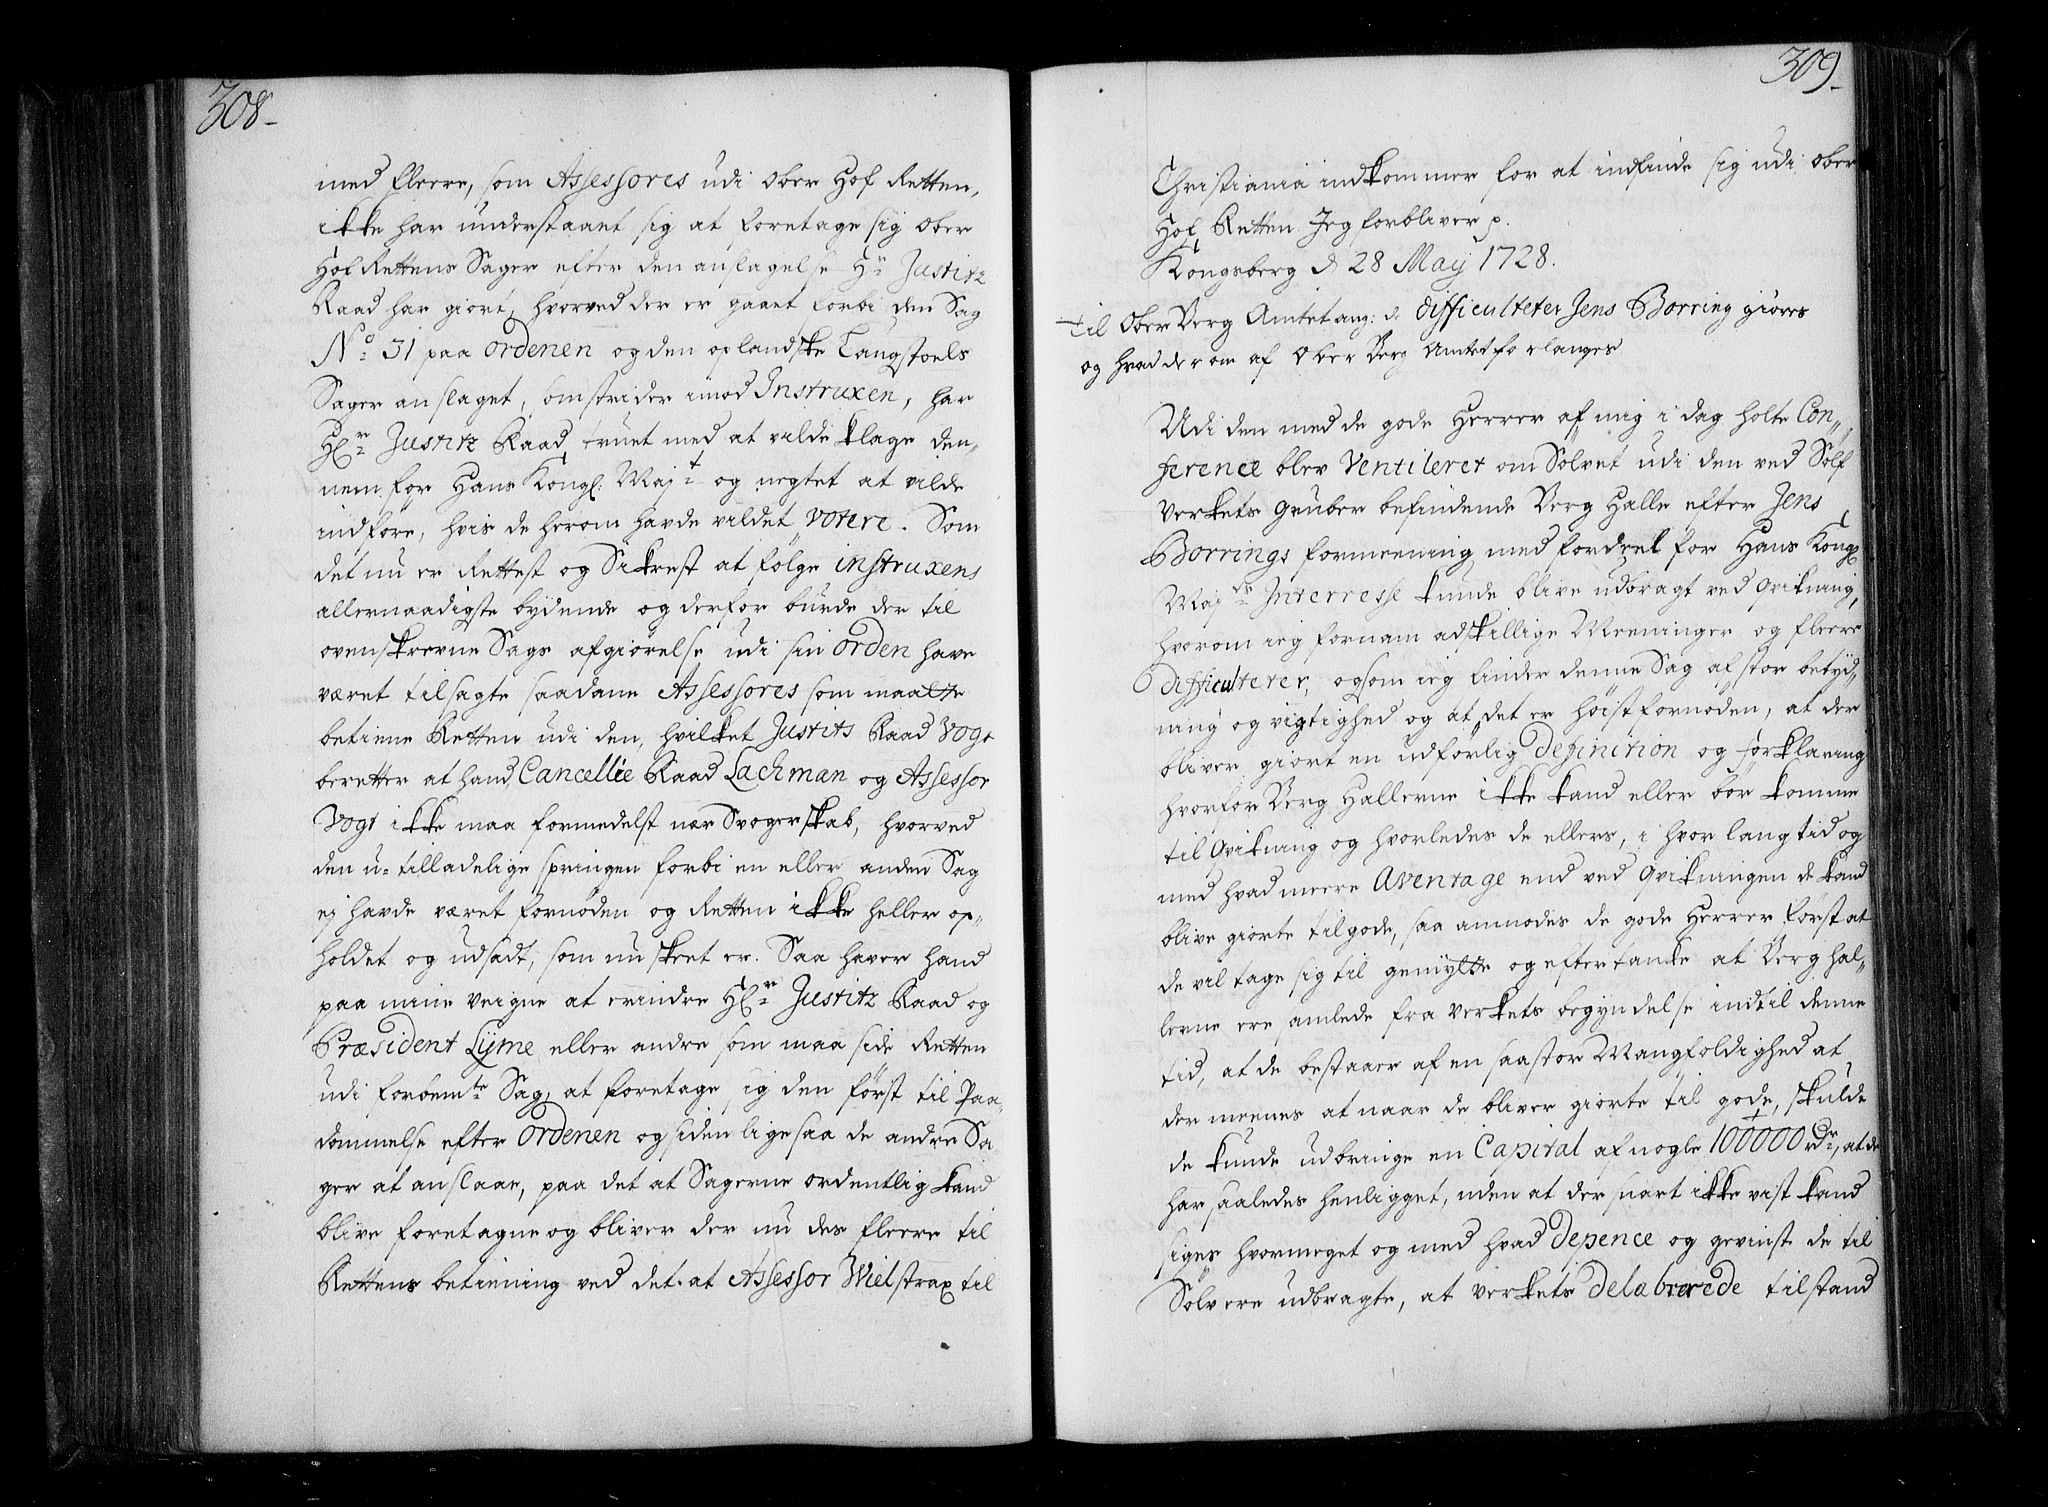 308-
med fleere, som Assessores udi Ober Hof Retten,
ikke har understaaet sig at foretage sig Ober
Hof Rettens Sager efter den anslagelse Hr Justitz
Raad har giort, hvorved der er gaaet forbi den Sag
No 31 paa Ordenen og den oplandske Langstoels
Sager anslaget, som strider imod Instruxen, har
Hr Justitz Raad truet med at vilde klage den„
nem for Hans Kongl: Majt og negtet at vilde
indføre, hvis de herom havde vildet votere. Som
det nu er Rettest og Sikrest at følge instruxens
allernaadigste bydende og derfor burde der til
ovenskrevne Sags afgiørelse udi sin Orden have
været tilsagte saadane Assessores som maatte
betiene Retten udi den, hvilket Justits Raad Vogt
beretter at hand, Cancellie Raad Lachman og Assessor
Vogt ikke maa formedelst nær Svogerskab, hvorved
den u-tilladelige springen forbi en eller anden Sag
ej havde været fornøden og Retten ikke heller op„
holdet og udsadt, som nu skeet er. Saa haver hand
paa mine veigne at erindre Hr Justitz Raad og
Præsident Lyme eller andre som maa side Retten
udi forbemte Sag, at foretage sig den først til Paa„
dømmelse efter Ordenen og siden ligesaa de andre Sa„
ger at anslaae, paa det at Sagerne ordentlig kand
blive foretagne og bliver der nu des fleere til
Rettens betiening ved det at Assessor Wiel strax til
309-
Christiania indkommer for at indfinde sig udi Ober
Hof Retten. Jeg forbliver p.
Kongsberg d 28 Maij 1728.
Til Ober Berg Amtet ang: d. difficulteter Jens Borring giøres
og hvad derom af Ober Berg Amtet forlanges
Udi den med de gode Herrer af mig i dag holte Con„
ference blev Ventileret om Sølvet udi den ved Sølf
verkets gruber befindende Berg Halle efter Jens
Borrings formeening med fordeel for Hans Kongl
Majts Interresse kunde blive udbragt ved qvikning,
hvorom ieg fornam adskillige Meeninger og fleere
difficulteter, og som ieg finder denne Sag af stor betyd„
ning og vigtighed og at det er høist fornøden, at der
bliver giort en udførlig Definition og forklaring
hvorfor Berg Hallerne ikke kand eller bør komme
til qvikning og hvorledes de ellers, i hvor lang tid og
med hvad meere Aventage end ved qvikningen de kand
blive giorte til gode, saa anmodes de gode Herrer først at
de vil tage sig til gemytte og eftertanke at Berg hal„
lerne ere samlede fra verkets begyndelse indtil denne
tid, at de bestaaer af en saa stor Mangfoldighed at
der meenes at naar de bliver giorte til gode, skulde
de kunde udbringe en Capital af nogle 100000 rdr, at de
har saaledes henligget, uden at der snart ikke vist kand
siges hvormeget og med hvad depence og gevinst de til
Sølv ere udbragte, at verkets delabrerede tilstand